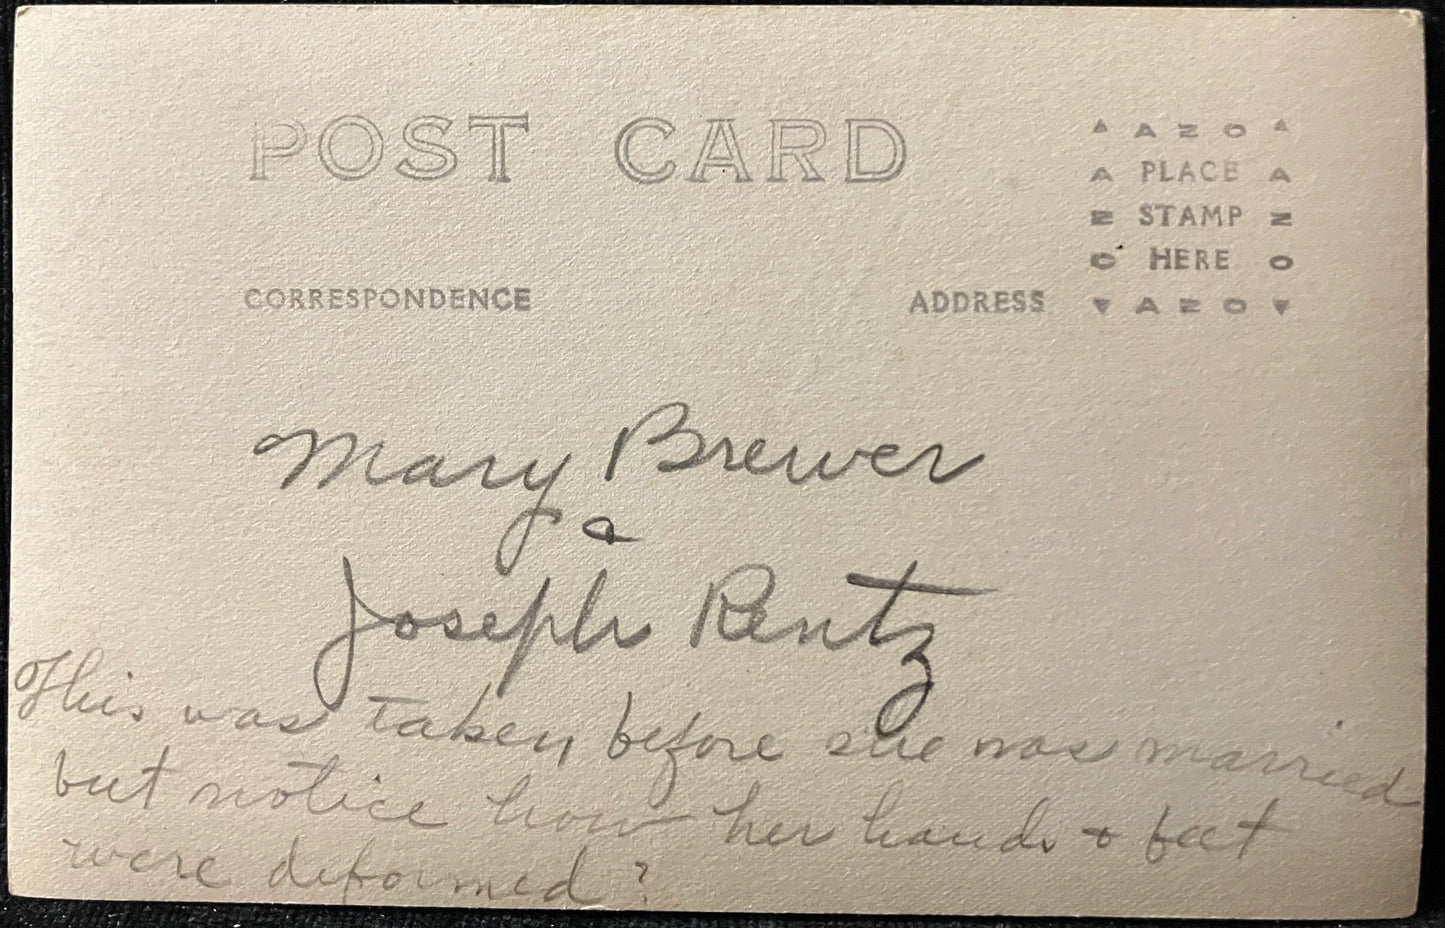 POST CARD
▲ AZO ▲
A PLACE A
Z STAMP Z
O HERE O
▼ AZO ▼
CORRESPONDENCE
ADDRESS
Mary Brewer
&
Joseph Rentz
This was taken before she was married
but notice how her hands & feet
were deformed?